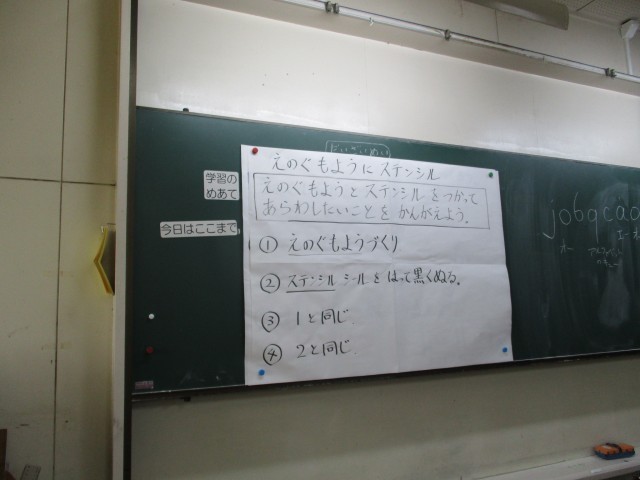 えのぐもようにステンシル
学習の
めあて
えのぐもようとステンシルをつかって
あらわしたいことをかんがえよう。
今日はここまで
① えのぐもようづくり
② ステンシルシールをはって黒くぬる。
③ 1と同じ
④ 2と同じ
jobqcao